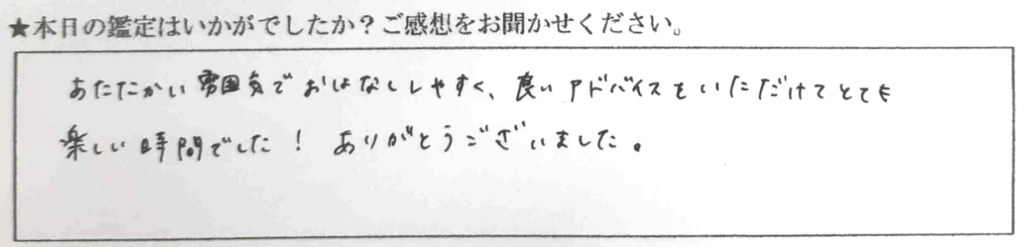 ★本日の鑑定はいかがでしたか？ご感想をお聞かせください。
あたたかい雰囲気でおはなししやすく、良いアドバイスをいただけてとても
楽しい時間でした！ありがとうございました。